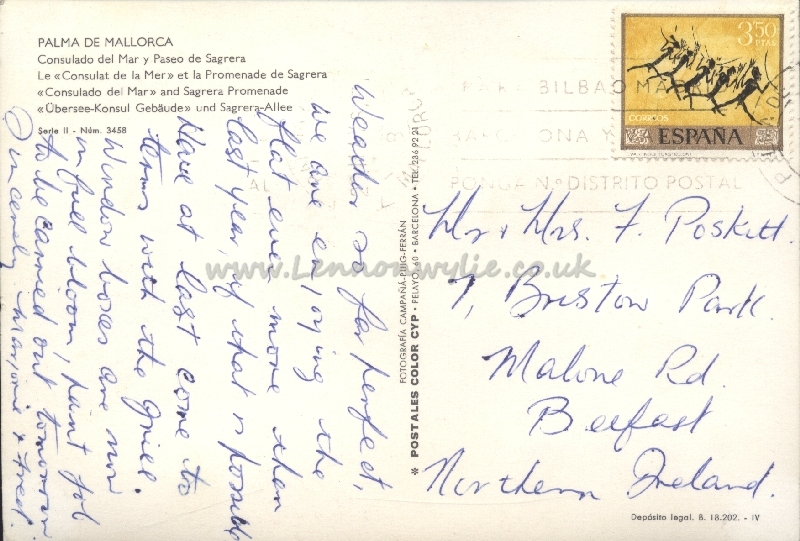 PALMA DE MALLORCA
Consulado del Mar y Paseo de Sagrera
Le «Consulat de la Mer» et la Promenade de Sagrera
«Consulado del Mar» and Sagrera Promenade
«Übersee-Konsul Gebäude» und Sagrera-Allee
Serie II - Núm. 3458
Weather so far perfect,
we are enjoying the
flat even more then
last year if that is possible
Have at last come to
terms with the grill.
Window boxes are now
in full bloom, paint job
to be carried out tomorrow
Sincerely Marjorie & Fred.
FOTOGRAFÍA CAMPAÑÁ-PUIG-FERRÁN
* POSTALES COLOR CYP • PELAYO, 60 • BARCELONA • TEL. 236 92 21
3'50
PTAS
CORREOS
ESPAÑA
PARA BILBAO MADRI
BARCELONA Y
PONGA N.º DISTRITO POSTAL
Mr & Mrs. F. Poskitt.
7, Bristow Park.
Malone Rd.
Belfast
Northern Ireland.
Depósito legal. B. 18.202. - IV
www.Lennonwylie.co.uk